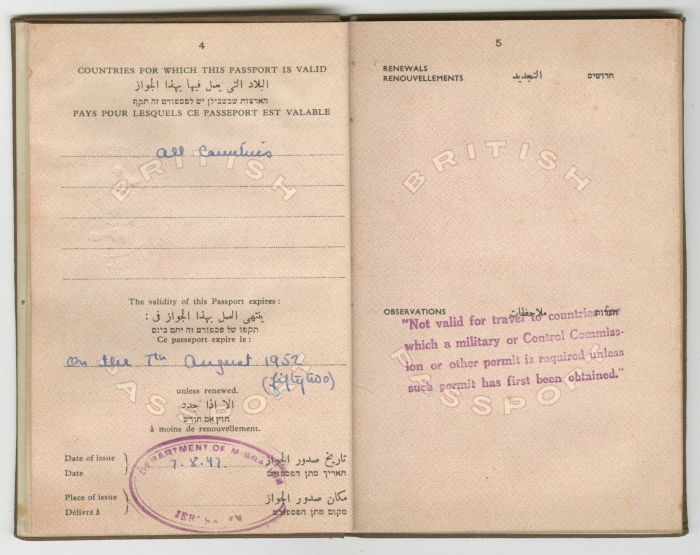 4
COUNTRIES FOR WHICH THIS PASSPORT IS VALID
البلاد التى يعمل فيها بهذا الجواز
הארצות שבשבילן יש לפספורט זה תקף
PAYS POUR LESQUELS CE PASSEPORT EST VALABLE
All Countries
BRITISH
The validity of this Passport expires:
ينتهى العمل بهذا الجواز فى:
תקפו של פספורט זה יתם ביום
Ce passeport expire le:
on the 7th August 1952
(fifty two)
PASSPORT
unless renewed.
الا اذا جدد
חוץ אם חודש
à moins de renouvellement.
Date of issue
تاريخ صدور الجواز
Date
7.8.47.
תאריך מתן הפספורט
Place of issue
مكان صدور الجواز
Délivré à
מקום מתן הפספורט
DEPARTMENT OF MIGRATION
JERUSALEM
5
RENEWALS
RENOUVELLEMENTS
التجديد
חדושים
BRITISH
OBSERVATIONS
ملاحظات
הערות
"Not valid for travel to countries for
which a military or Control Commiss-
ion or other permit is required unless
such permit has first been obtained."
PASSPORT